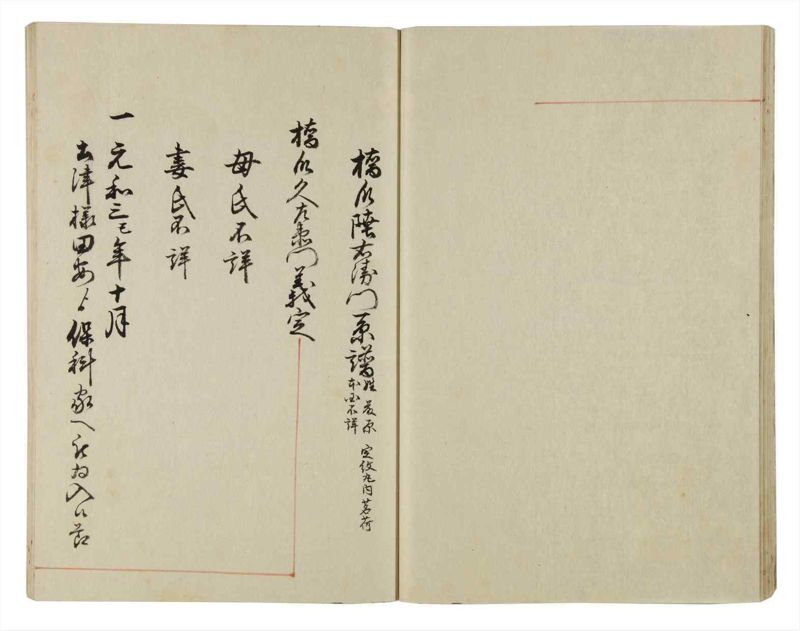 橋爪陸右衛門系譜
姓藤原 定紋丸内茗荷
本国不詳
橋爪久左衛門義定
母氏不詳
妻氏不詳
一元和三巳年十月
土津様田安ゟ保科家へ被為入候節